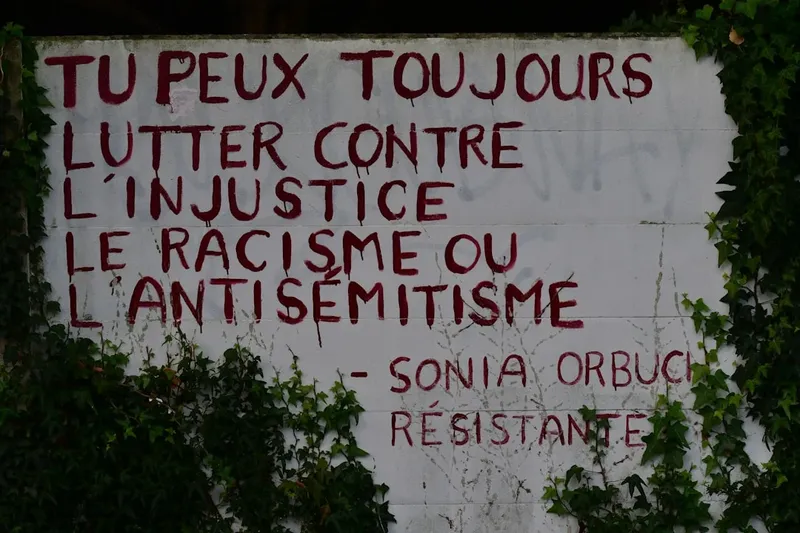 TU PEUX TOUJOURS
LUTTER CONTRE
L'INJUSTICE
LE RACISME OU
L'ANTISÉMITISME
- SONIA ORBUCH
RÉSISTANTE